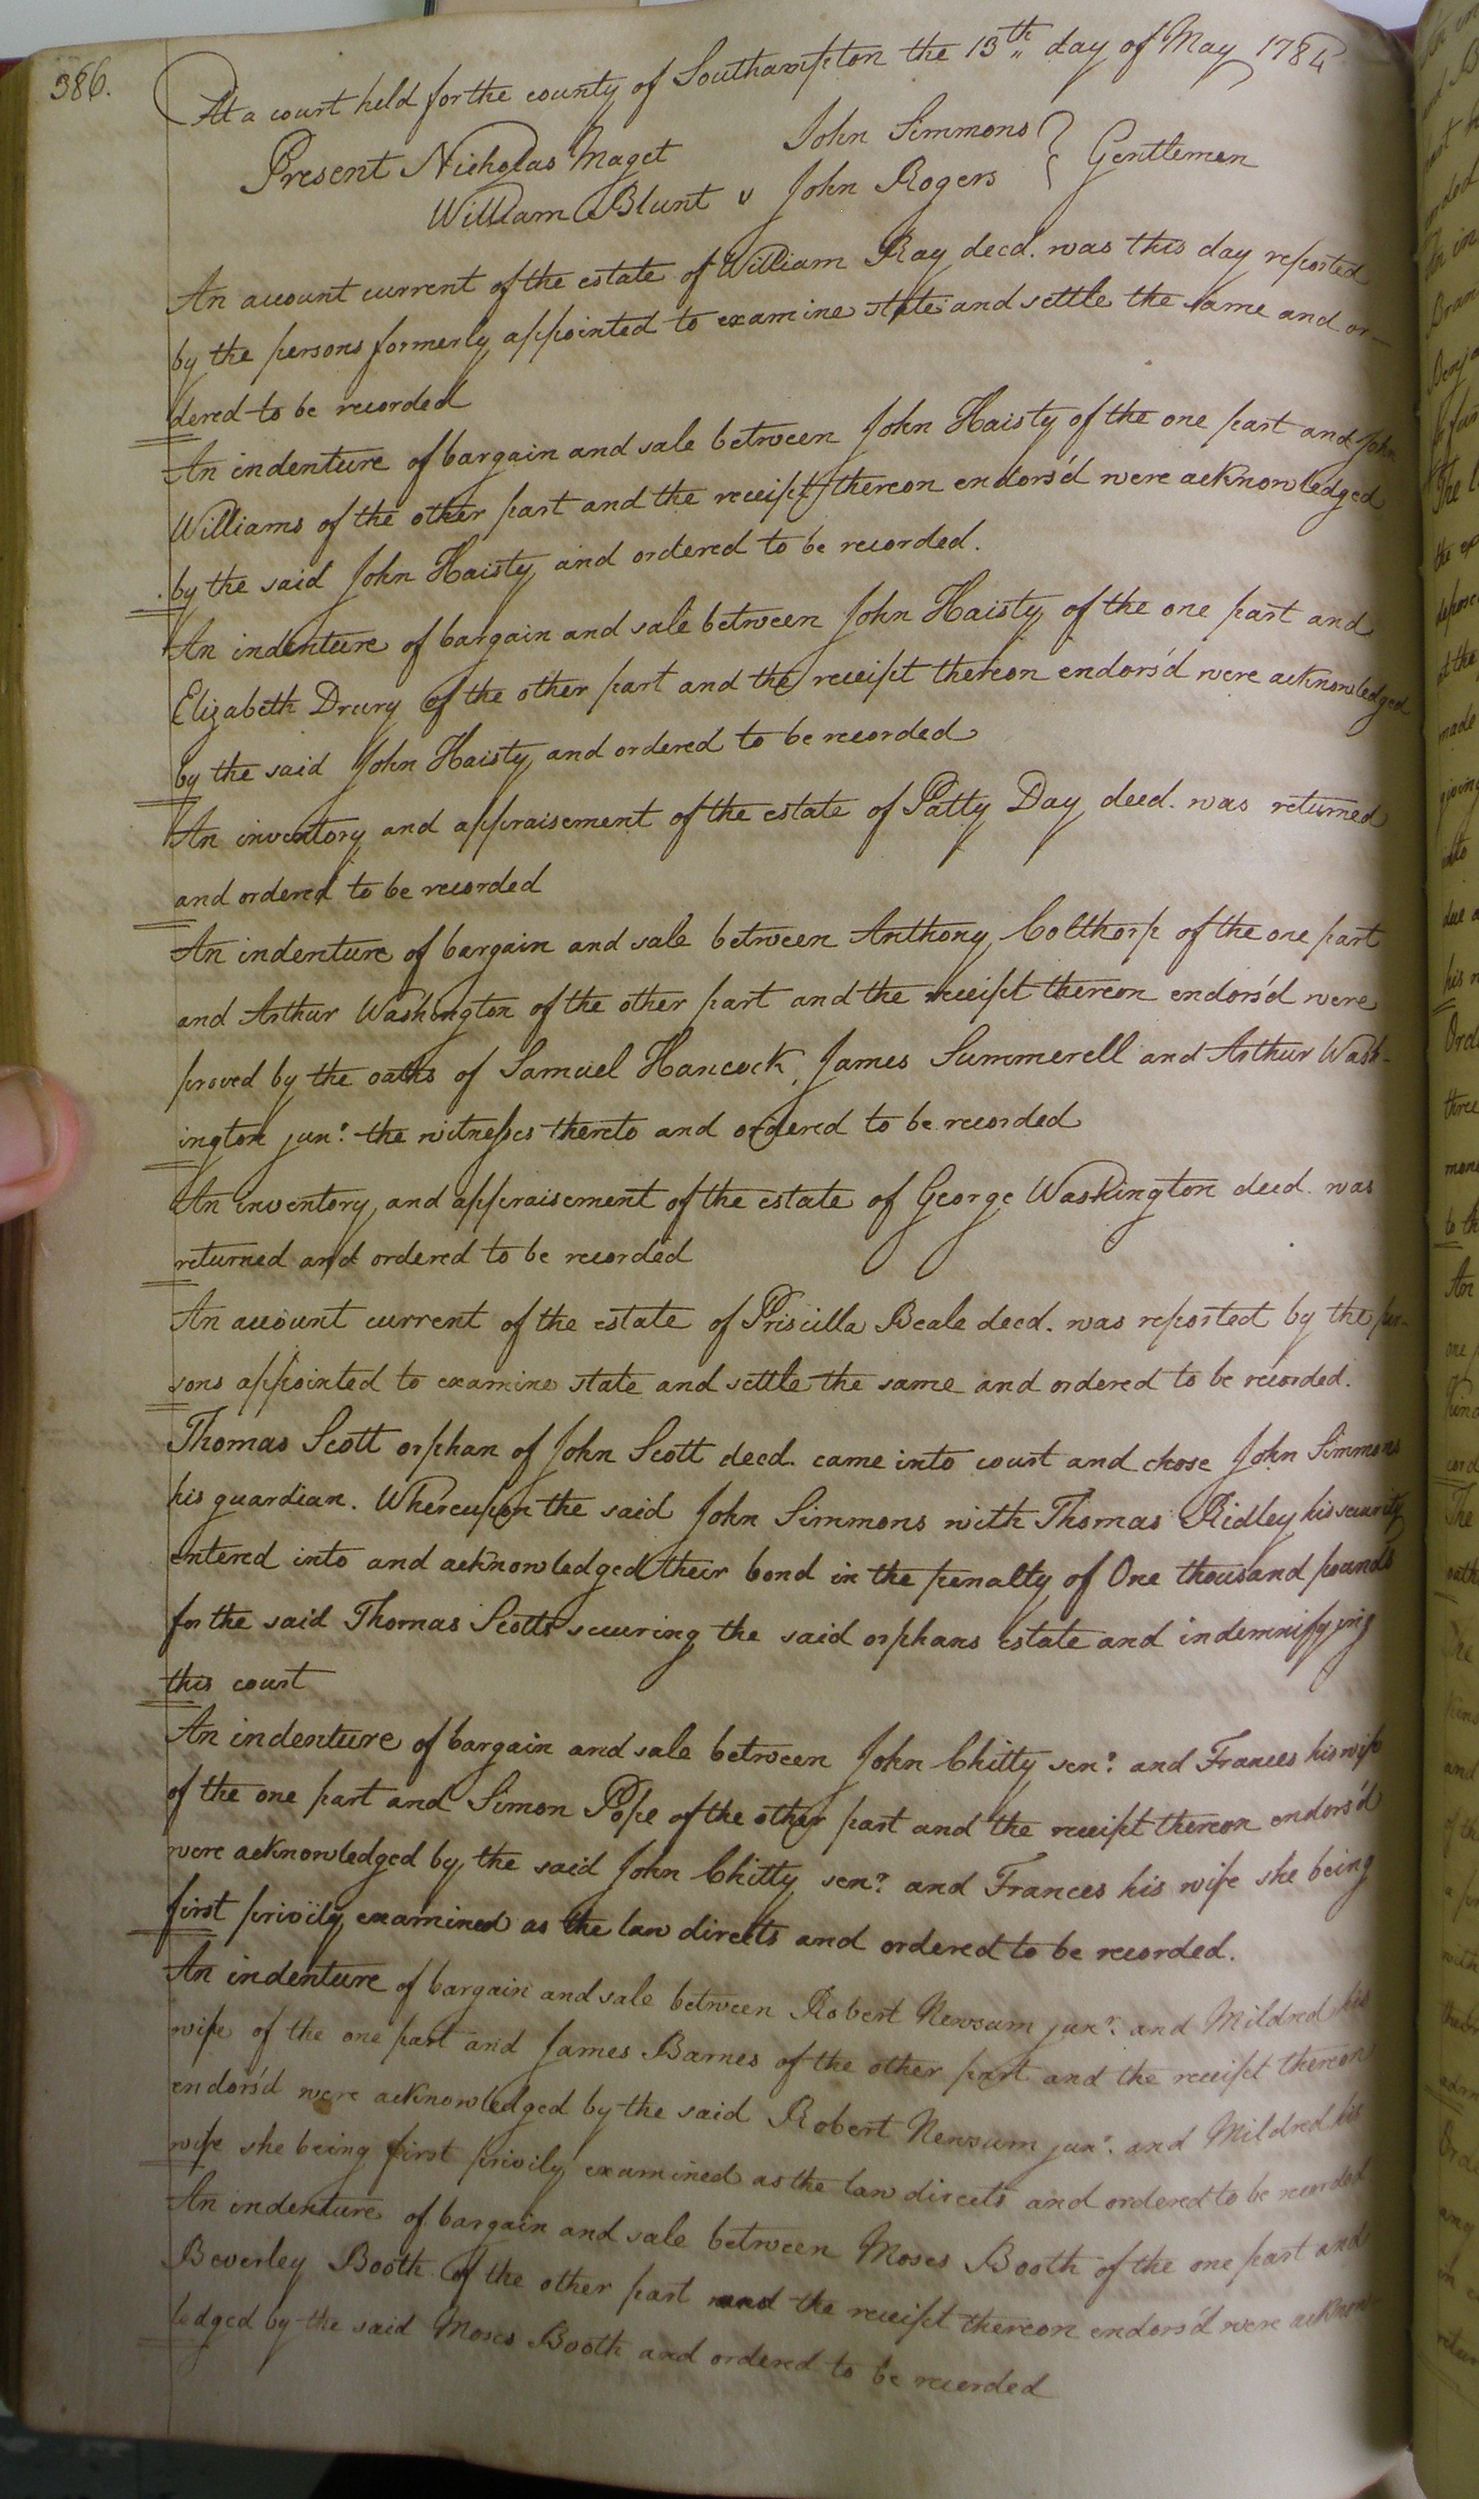 386.
At a court held for the county of Southampton the 13th day of May 1784
Present Nicholas Maget John Simmons } Gentlemen
William Blunt & John Rogers
An account current of the estate of William Ray decd. was this day reported
by the persons formerly appointed to examine state and settle the same and or-
dered to be recorded
An indenture of bargain and sale between John Haisty of the one part and John
Williams of the other part and the receipt thereon endors'd were acknowledged
by the said John Haisty and ordered to be recorded.
An indenture of bargain and sale between John Haisty of the one part and
Elizabeth Drury of the other part and the receipt thereon endors'd were acknowledged
by the said John Haisty and ordered to be recorded
An inventory and appraisement of the estate of Patty Day decd. was returned
and ordered to be recorded
An indenture of bargain and sale between Anthony Colthorp of the one part
and Arthur Washington of the other part and the receipt thereon endors'd were
proved by the oaths of Samuel Hancock, James Summerell and Arthur Wash-
ington junr. the witnesses thereto and ordered to be recorded
An inventory and appraisement of the estate of George Washington decd. was
returned and ordered to be recorded
An account current of the estate of Priscilla Beale decd. was reported by the per-
sons appointed to examine state and settle the same and ordered to be recorded.
Thomas Scott orphan of John Scott decd. came into court and chose John Simmons
his guardian. Whereupon the said John Simmons with Thomas Ridley his security
entered into and acknowledged their bond in the penalty of One thousand pounds
for the said Thomas Scotts securing the said orphans estate and indemnifying
this court
An indenture of bargain and sale between John Chitty senr. and Frances his wife
of the one part and Simon Pope of the other part and the receipt thereon endors'd
were acknowledged by the said John Chitty senr. and Frances his wife she being
first privily examined as the law directs and ordered to be recorded.
An indenture of bargain and sale between Robert Newsum junr. and Mildred his
wife of the one part and James Barnes of the other part and the receipt thereon
endors'd were acknowledged by the said Robert Newsum junr. and Mildred his
wife she being first privily examined as the law directs and ordered to be recorded
An indenture of bargain and sale between Moses Booth of the one part and
Beverley Booth of the other part and the receipt thereon endors'd were acknow-
ledged by the said Moses Booth and ordered to be recorded